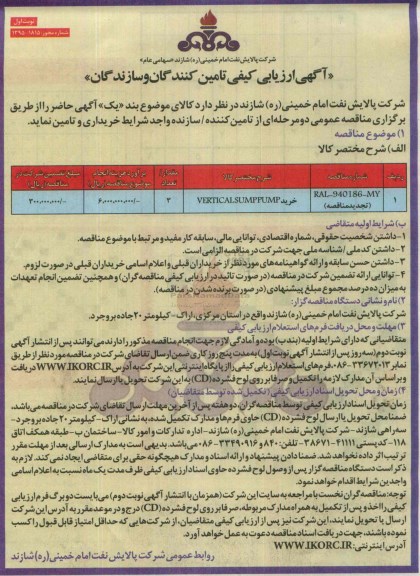 نوبت اول
شماره مجوز: ۱۳۹۵.۱۸۱۵
شرکت پالایش نفت امام خمینی (ره) شازند «سهامی عام»
«آگهی ارزیابی کیفی تامین کنندگان و سازندگان»
شرکت پالایش نفت امام خمینی (ره) شازند در نظر دارد کالای موضوع بند «یک» آگهی حاضر را از طریق
برگزاری مناقصه عمومی دو مرحله‌ای از تامین کننده / سازنده واجد شرایط خریداری و تامین نماید.
۱) موضوع مناقصه
الف) شرح مختصر کالا
ردیف شماره مناقصه شرح مختصر کالا تعداد
۱ RAL-940186-MY (تجدید مناقصه) خرید VERTICAL SUMP PUMP ۳ ۶,۰۰۰,۰۰۰,۰۰۰/- ۳۰۰,۰۰۰,۰۰۰/-
ب) شرایط اولیه متقاضی
۱- داشتن شخصیت حقوقی، شماره اقتصادی، توانایی مالی، سابقه کار مفید و مرتبط با موضوع مناقصه.
۲- داشتن کد ملی / شناسه ملی جهت شرکت در مناقصه الزامی است.
۳- داشتن حسن سابقه و ارائه گواهینامه های مورد نظر از خریداران قبلی و اعلام اسامی خریداران قبلی در صورت لزوم.
۴- توانایی ارائه تضمین شرکت در مناقصه (در صورت تائید در ارزیابی کیفی مناقصه گران) و همچنین تضمین انجام تعهدات
به میزان ده درصد مجموع مبلغ پیشنهادی (در صورت برنده شدن در مناقصه).
۲) نام و نشانی دستگاه مناقصه گزار:
شرکت پالایش نفت امام خمینی (ره) شازند واقع در استان مرکزی، اراک - کیلومتر ۲۰ جاده بروجرد.
۳) مهلت و محل دریافت فرم های استعلام ارزیابی کیفی
متقاضیانی که دارای شرایط اولیه (بند ب) بوده و آمادگی لازم جهت انجام مناقصه مذکور را دارند می توانند پس از انتشار آگهی
نوبت دوم (سه روز پس از انتشار آگهی نوبت اول) به مدت پنج روز کاری ضمن ارسال تقاضای شرکت در مناقصه مورد نظر از طریق
نمابر ۳۳۶۷۲۰۱۳-۰۸۶، فرم های استعلام ارزیابی کیفی را از پایگاه اینترنتی این شرکت به آدرس WWW.IKORC.IR دریافت
و بر اساس آن مدارک لازمه را تکمیل و سر فایل بر روی لوح فشرده (CD) به این شرکت تحویل یا ارسال نمایند.
۴) زمان و محل تحویل اسناد ارزیابی کیفی (تکمیل شده توسط متقاضیان)
زمان تحویل اسناد ارزیابی کیفی توسط مناقصه گران، دو هفته پس از آخرین مهلت ارسال تقاضای شرکت در مناقصه می باشد.
ضمنا محل تحویل یا ارسال لوح فشرده (CD) حاوی فرم ها و مدارک تکمیل شده، به نشانی اراک - کیلومتر ۲۰ جاده بروجرد -
سه راهی شازند - شرکت پالایش نفت امام خمینی (ره) شازند - اداره تدارکات و امور کالا - ساختمان ب - طبقه همکف اتاق
۱۱۸ - کدپستی ۴۱۱۱۱-۳۸۶۷۱ - تلفن: ۸۴۰ و ۳۳۴۹۰۹۱۶-۰۸۶ می باشد. بدیهی است به مدارک ارسالی بعد از مهلت مقرر
ترتیب اثر داده نخواهد شد. ضمنا دادن پیشنهاد و ارائه اسناد و مدارک هیچگونه حقی برای متقاضی ایجاد نمی کند. لازم به
ذکر است دستگاه مناقصه گزار پس از وصول لوح فشرده حاوی اسناد ارزیابی کیفی ظرف مدت یک ماه نسبت به اعلام اسامی
واجدین شرایط اقدام خواهد نمود.
توجه: مناقصه گران نخست با مراجعه به سایت این شرکت (همزمان با انتشار آگهی نوبت دوم) می بایست دو برگ فرم ارزیابی
کیفی را اخذ و پس از تکمیل به همراه مدارک مربوطه، صرفا بر روی لوح فشرده (CD) درج و در موعد مقرر به آدرس این شرکت
ارسال یا تحویل نمایند، این شرکت نیز پس از ارزیابی کیفی متقاضیان، از شرکت هایی که حداقل امتیاز قابل قبول را کسب
نموده باشند، جهت دریافت اسناد مناقصه دعوت به عمل خواهد آورد.
آدرس اینترنتی: WWW.IKORC.IR
روابط عمومی شرکت پالایش نفت امام خمینی (ره) شازند